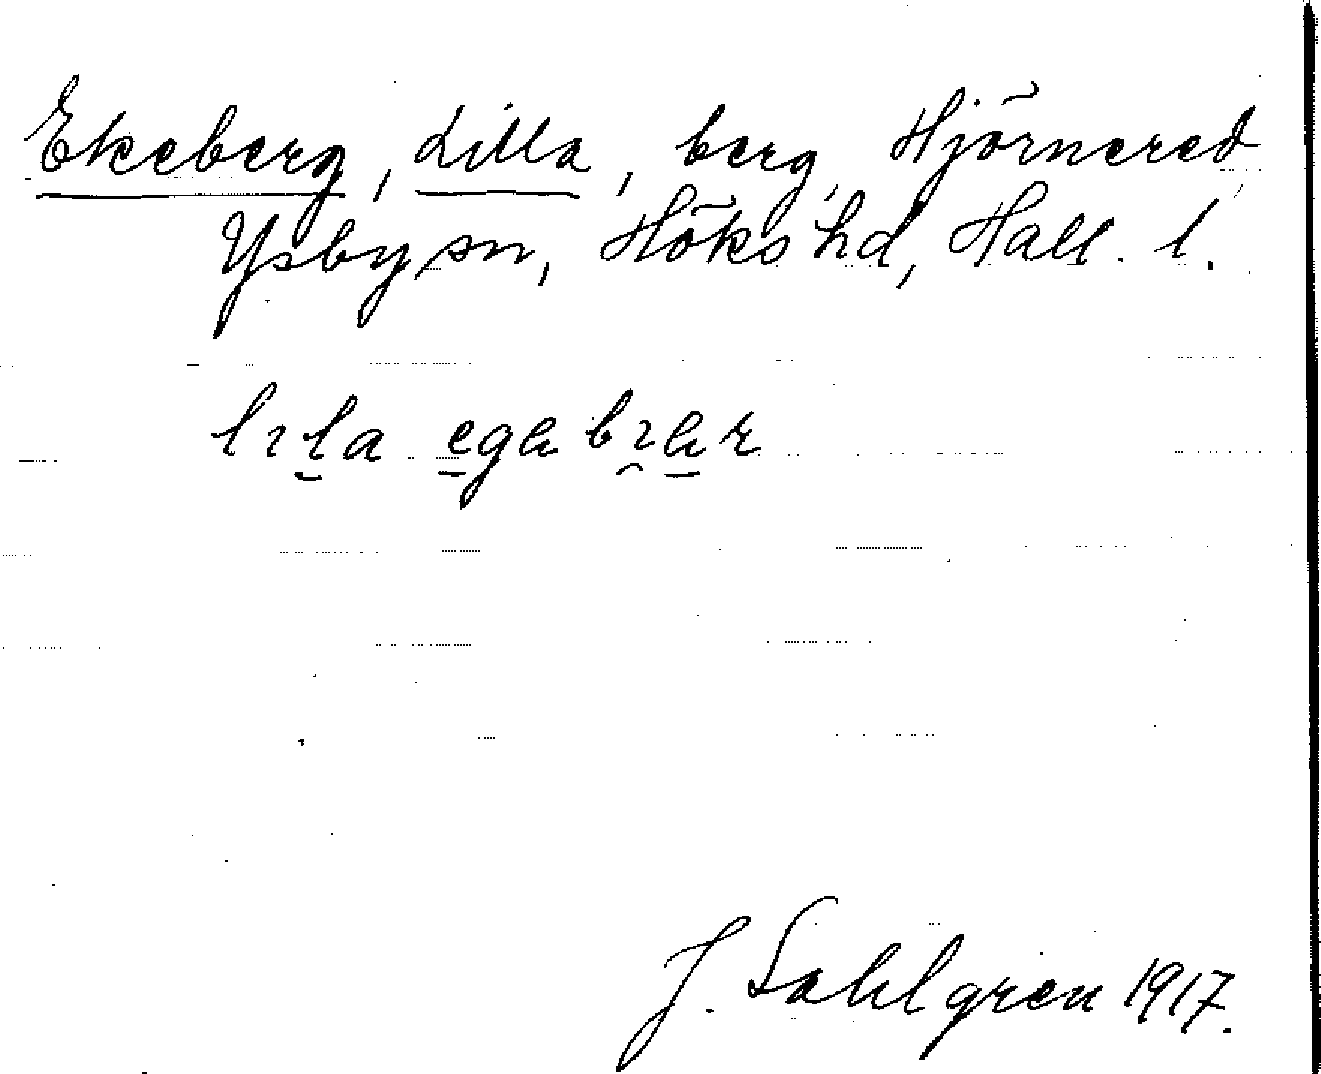 Ekeberg, Lilla, berg, Hjörnered,
Ysby sn, Höks hd, Hall. l.
J. Sahlgren 1917.